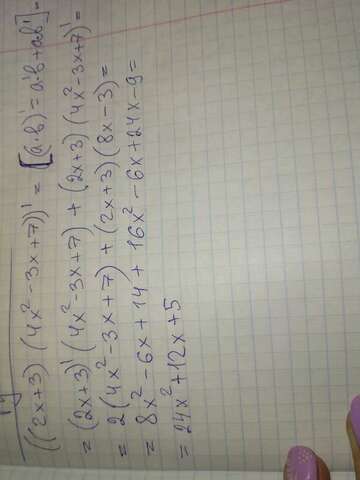 ((2x+3)(4x²-3x+7))' = [(a·b)' = a'b+ab'] =
= (2x+3)'(4x²-3x+7) + (2x+3)(4x²-3x+7)' =
= 2(4x²-3x+7) + (2x+3)(8x-3) =
= 8x²-6x+14+16x²-6x+24x-9 =
= 24x²+12x+5